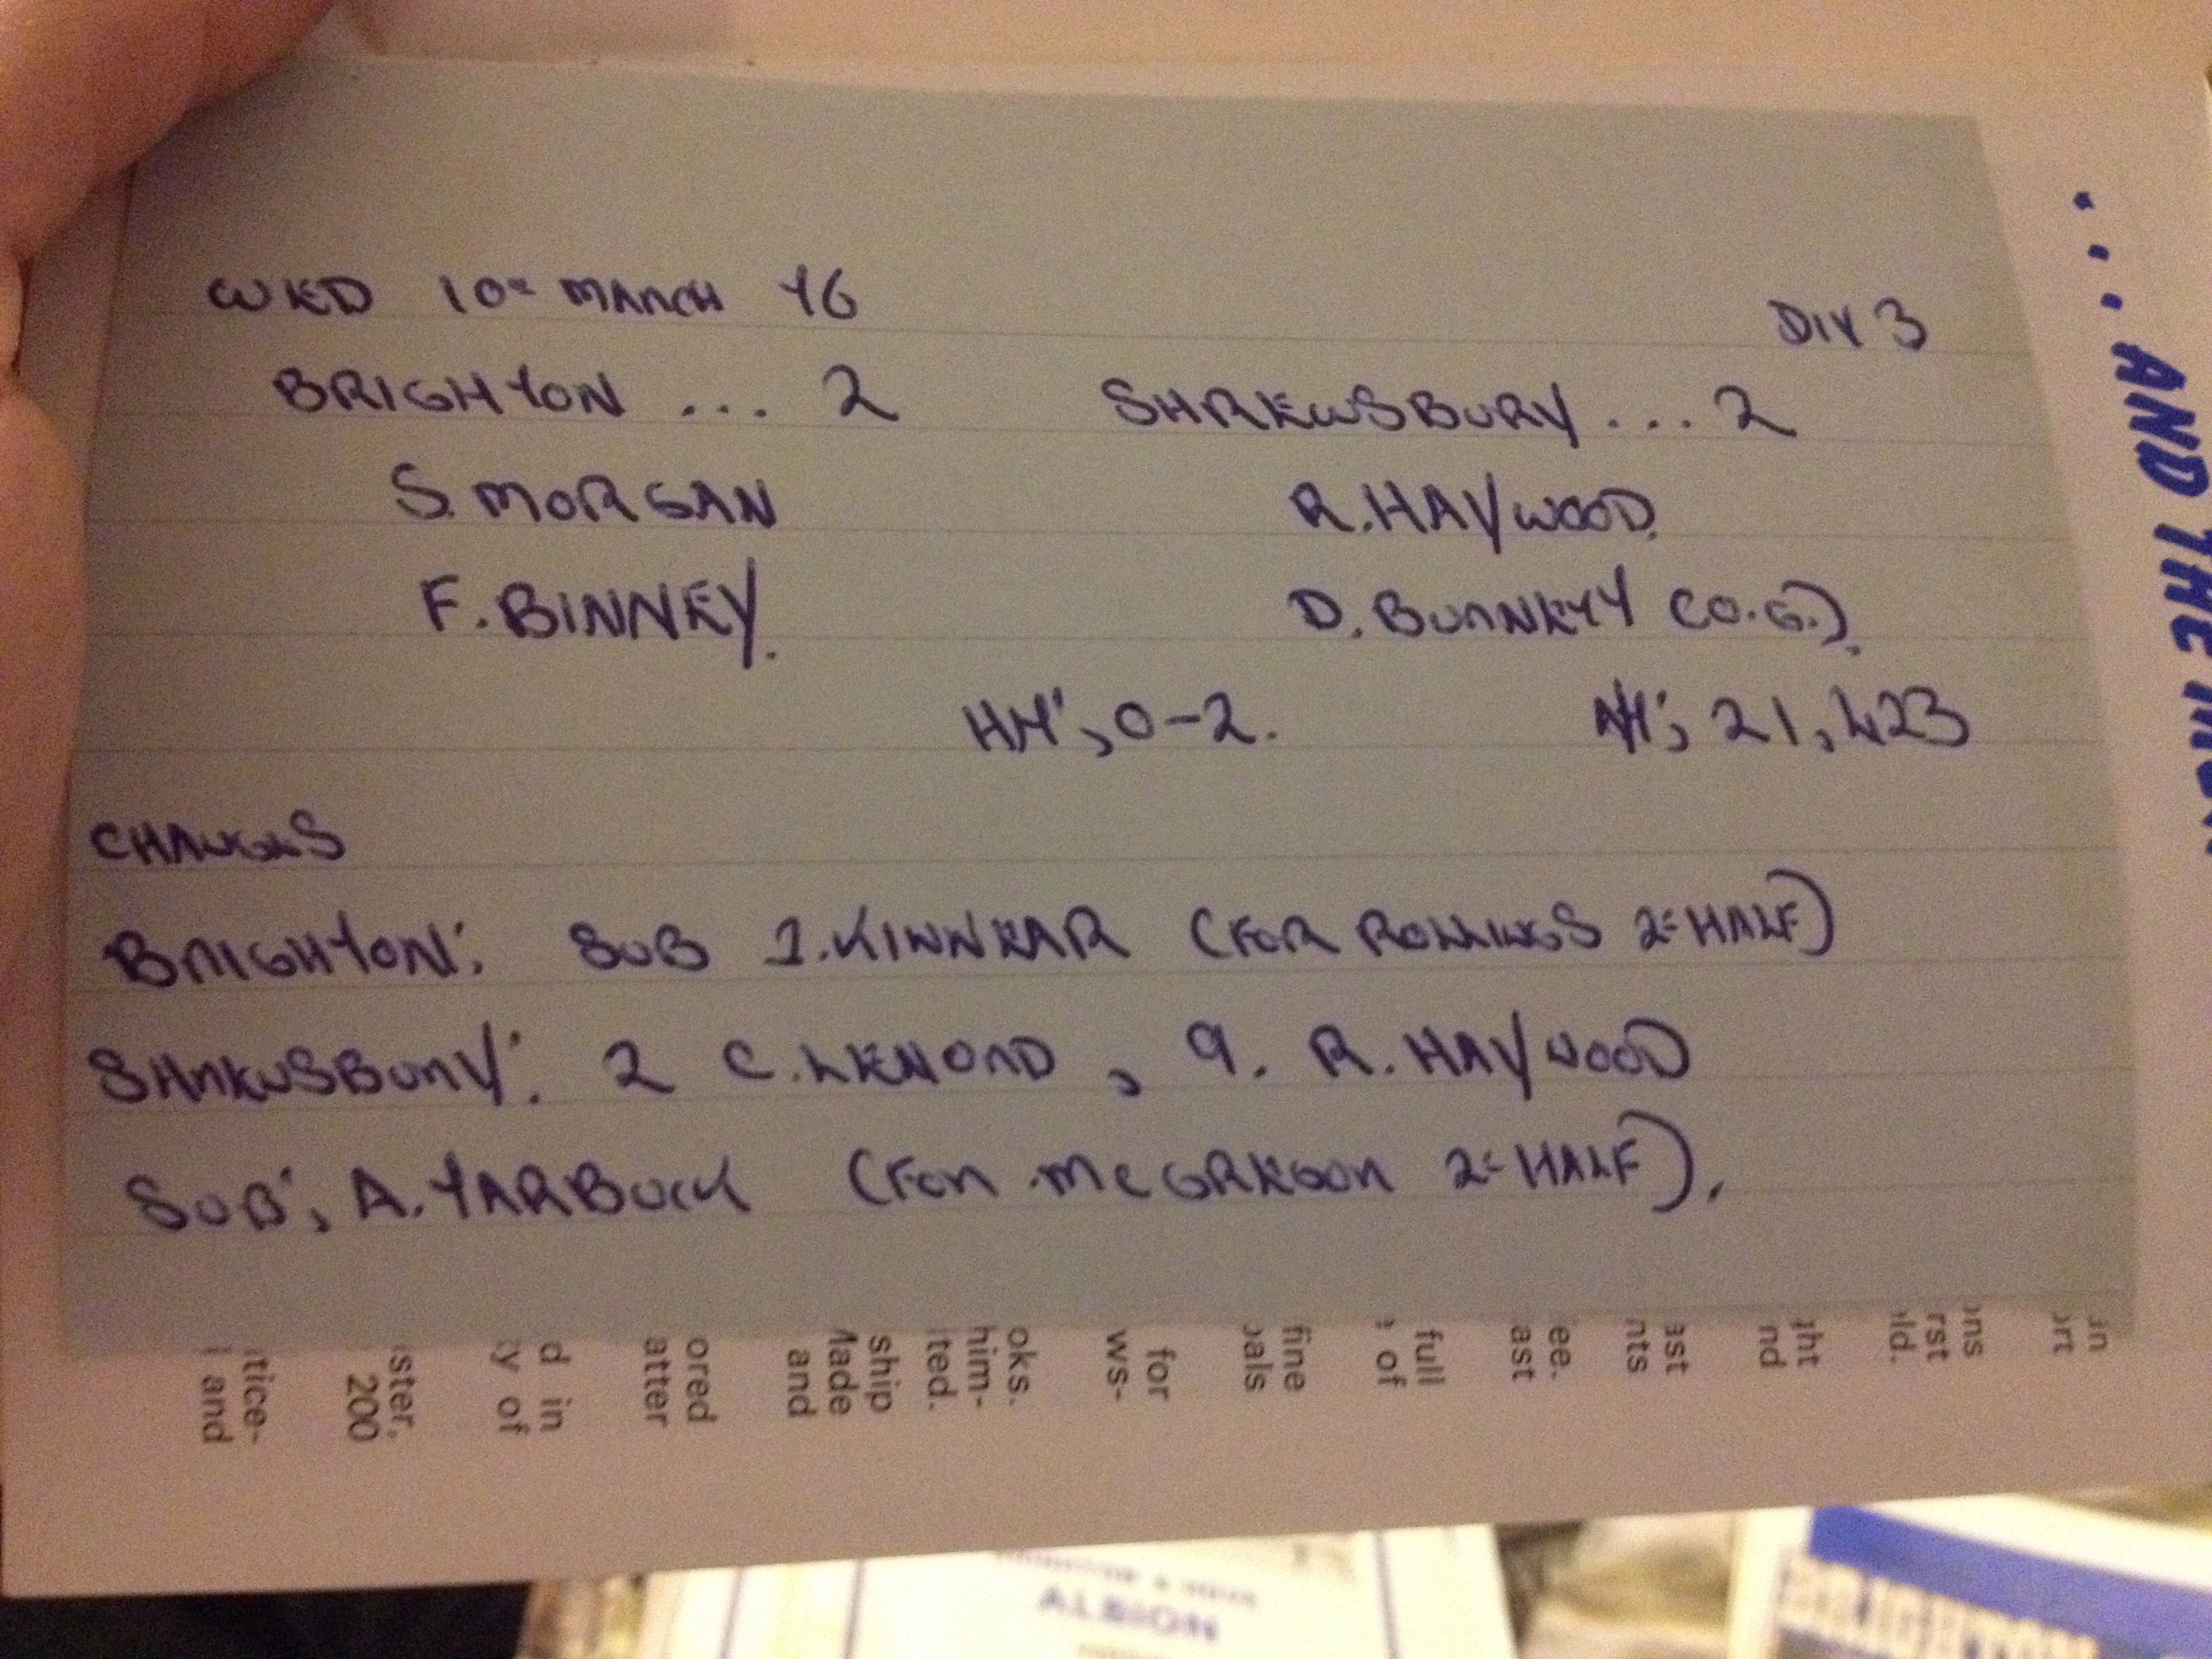 WED 10th MARCH 76
DIV 3
BRIGHTON ... 2 SHREWSBURY ... 2
S. MORGAN R. HAYWOOD.
F. BINNEY. D. BURNETT (O.G.).
HT:, 0-2. ATT:, 21,423
CHANGES
BRIGHTON: SUB J. KINNEAR (FOR ROLLINGS 2nd HALF)
SHREWSBURY: 2 C. LEMOND, 9. R. HAYWOOD
SUB:, A. TARBUCK (FOR McGREGOR 2nd HALF).
... AND THE
in
ort
ons
rst
ld.
ght
nd
ast
nts
ee.
ast
full
of
fine
oals
for
ws-
oks.
him-
ited.
ship
Made
and
ored
atter
d in
ty of
ster,
200
tice-
and
ALBION
BRIGHTON